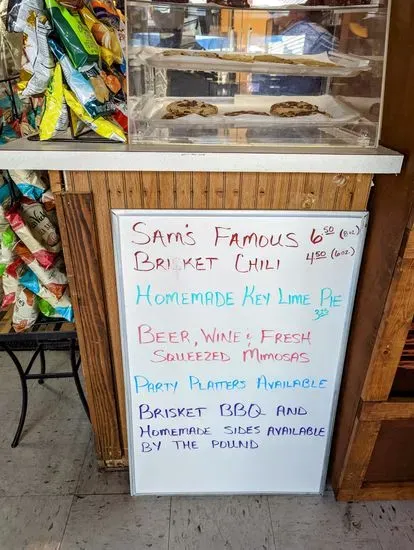 SAM'S FAMOUS 6.50 (8oz.)
BRISKET CHILI 4.50 (6oz.)
HOMEMADE KEY LIME PIE
3.25
BEER, WINE & FRESH
SQUEEZED MIMOSAS
PARTY PLATTERS AVAILABLE
BRISKET BBQ AND
HOMEMADE SIDES AVAILABLE
BY THE POUND